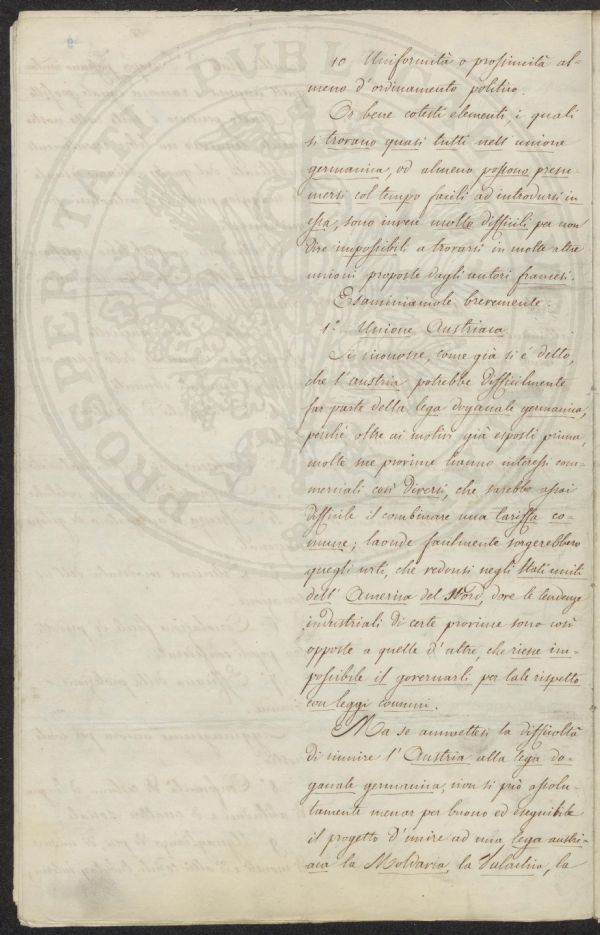 10 Uniformità o prossimità al=
meno d'ordinamento politico.
Or bene cotesti elementi, i quali
si trovano quasi tutti nell'unione
germanica, od almeno possono presu=
mersi col tempo facili ad introdursi in
essa, sono invece molto difficili per non
dire impossibili a trovarsi in molte altre
unioni proposte dagli autori francesi.
Esaminiamole brevemente:
1.° Unione Austriaca.
Si riconosce, come già si è detto,
che l'Austria potrebbe difficilmente
far parte della lega doganale germanica,
perché oltre ai motivi già esposti prima,
molte sue provincie hanno interessi com=
merciali così diversi, che sarebbe assai
difficile il combinare una tariffa co=
mune; laonde facilmente sorgerebbero
quegli urti, che vedonsi negli Stati uniti
dell'America del Nord, dove le tendenze
industriali di certe provincie sono così
opposte a quelle d'altre, che riesce im=
possibile il governarli per tale rispetto
con leggi comuni.
Ma se ammettesi la difficoltà
di riunire l'Austria alla lega do=
ganale germanica, non si può assolu=
tamente menar per buono ed eseguibile
il progetto d'unire ad una lega austri=
aca la Moldavia, la Valachia, la
PROSPERITATI PUBLICAE